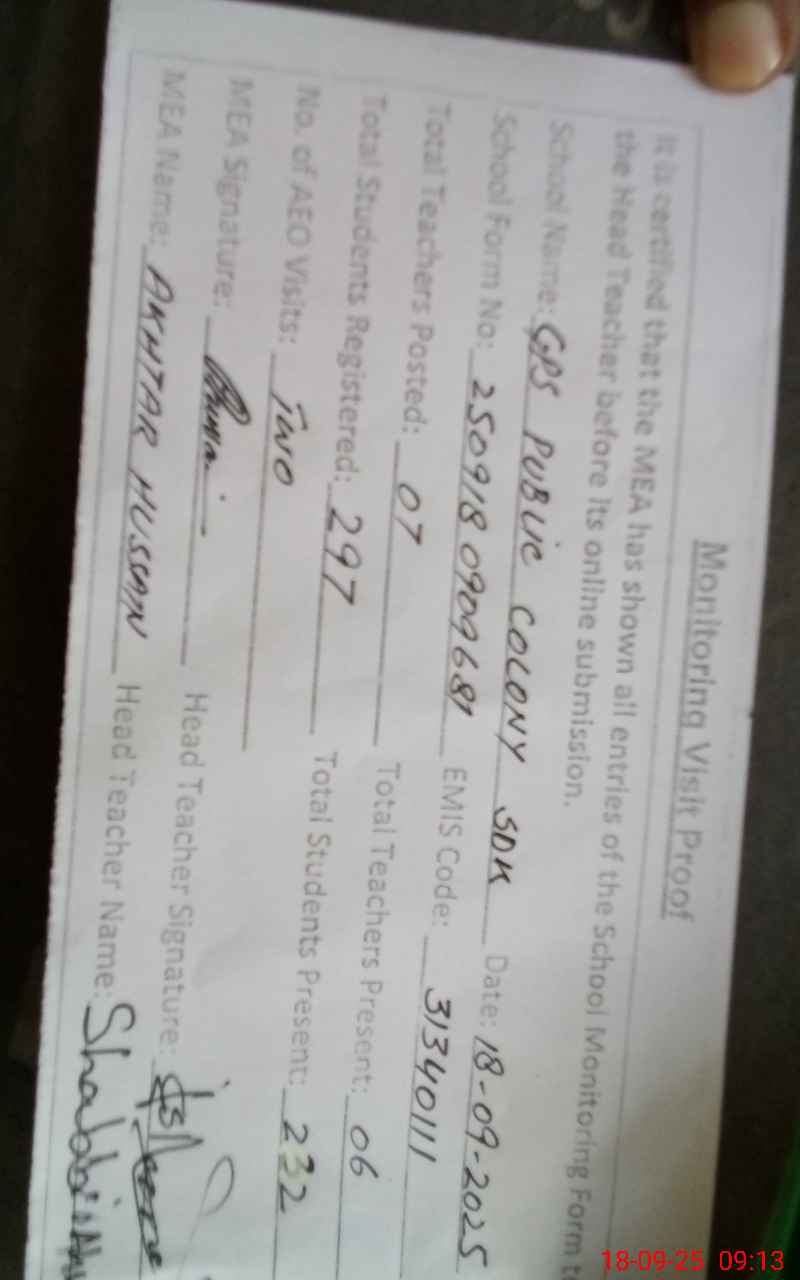 Monitoring Visit Proof
It is certified that the MEA has shown all entries of the School Monitoring Form t
the Head Teacher before its online submission.
School Name: GPS PUBLIC COLONY SDK Date: 18-09-2025
School Form No: 2509180909681 EMIS Code: 31340111
Total Teachers Posted: 07 Total Teachers Present: 06
Total Students Registered: 297 Total Students Present: 232
No. of AEO Visits: Two
MEA Signature: Head Teacher Signature:
MEA Name: AKHTAR HUSSAIN Head Teacher Name: Shabbir
18-09-25 09:13